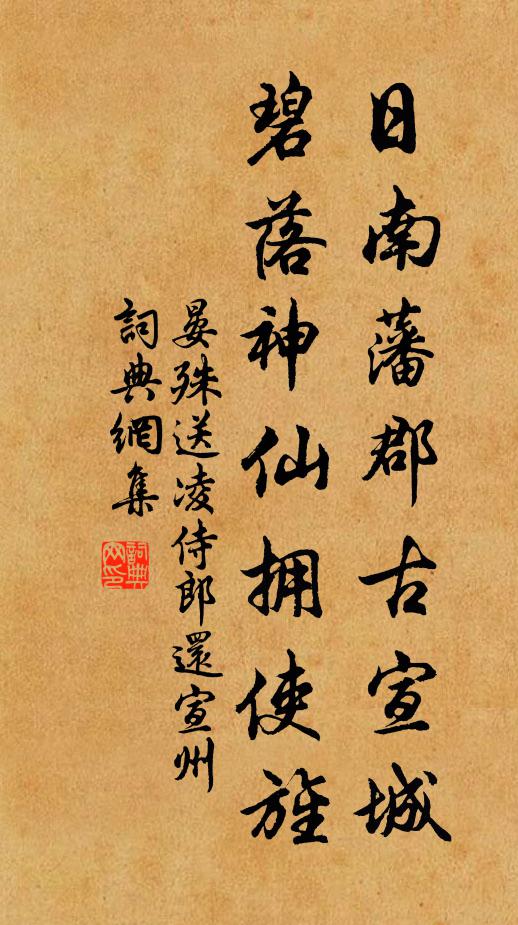 日南藩郡古宣城
碧落神仙拥使旌
晏殊送凌侍郎還宣州
詞典網集
詞典网印